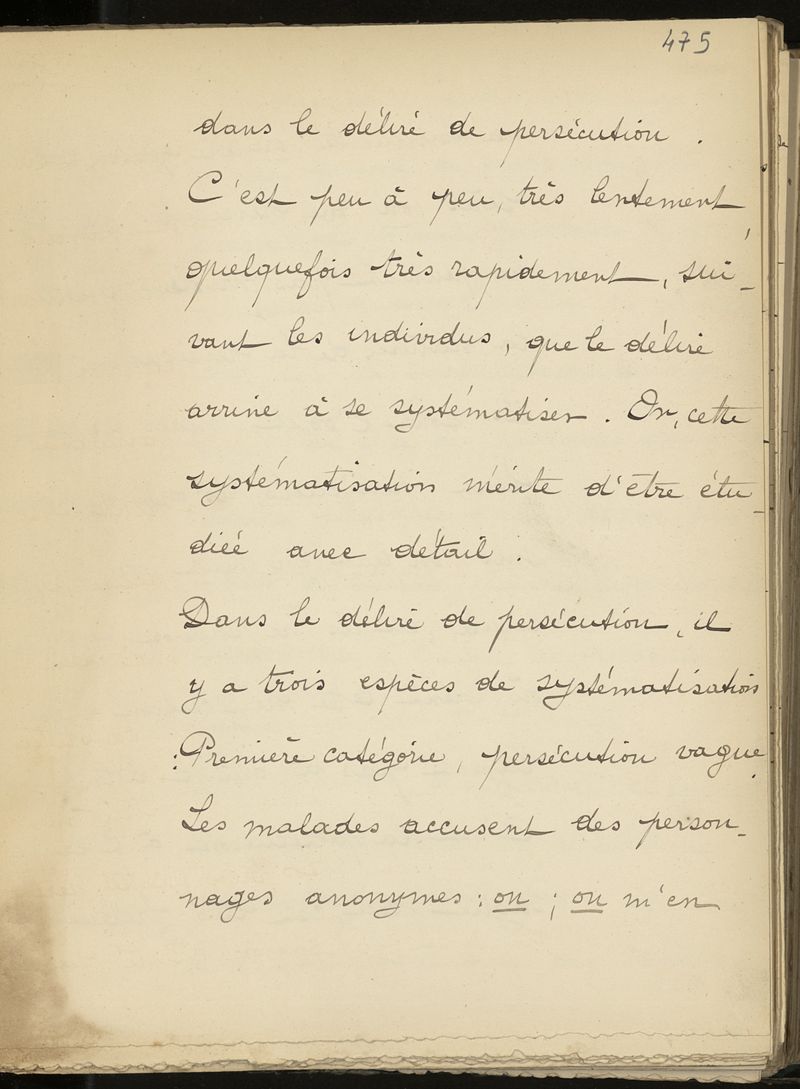 475
dans le délire de persécution.
C'est peu à peu, très lentement,
quelquefois très rapidement, sui-
vant les individus, que le délire
arrive à se systématiser. Or, cette
systématisation mérite d'être étu-
diée avec détail.
Dans le délire de persécution, il
y a trois espèces de systématisation
: Première catégorie, persécution vague.
Les malades accusent des person-
nages anonymes : on ; on m'en